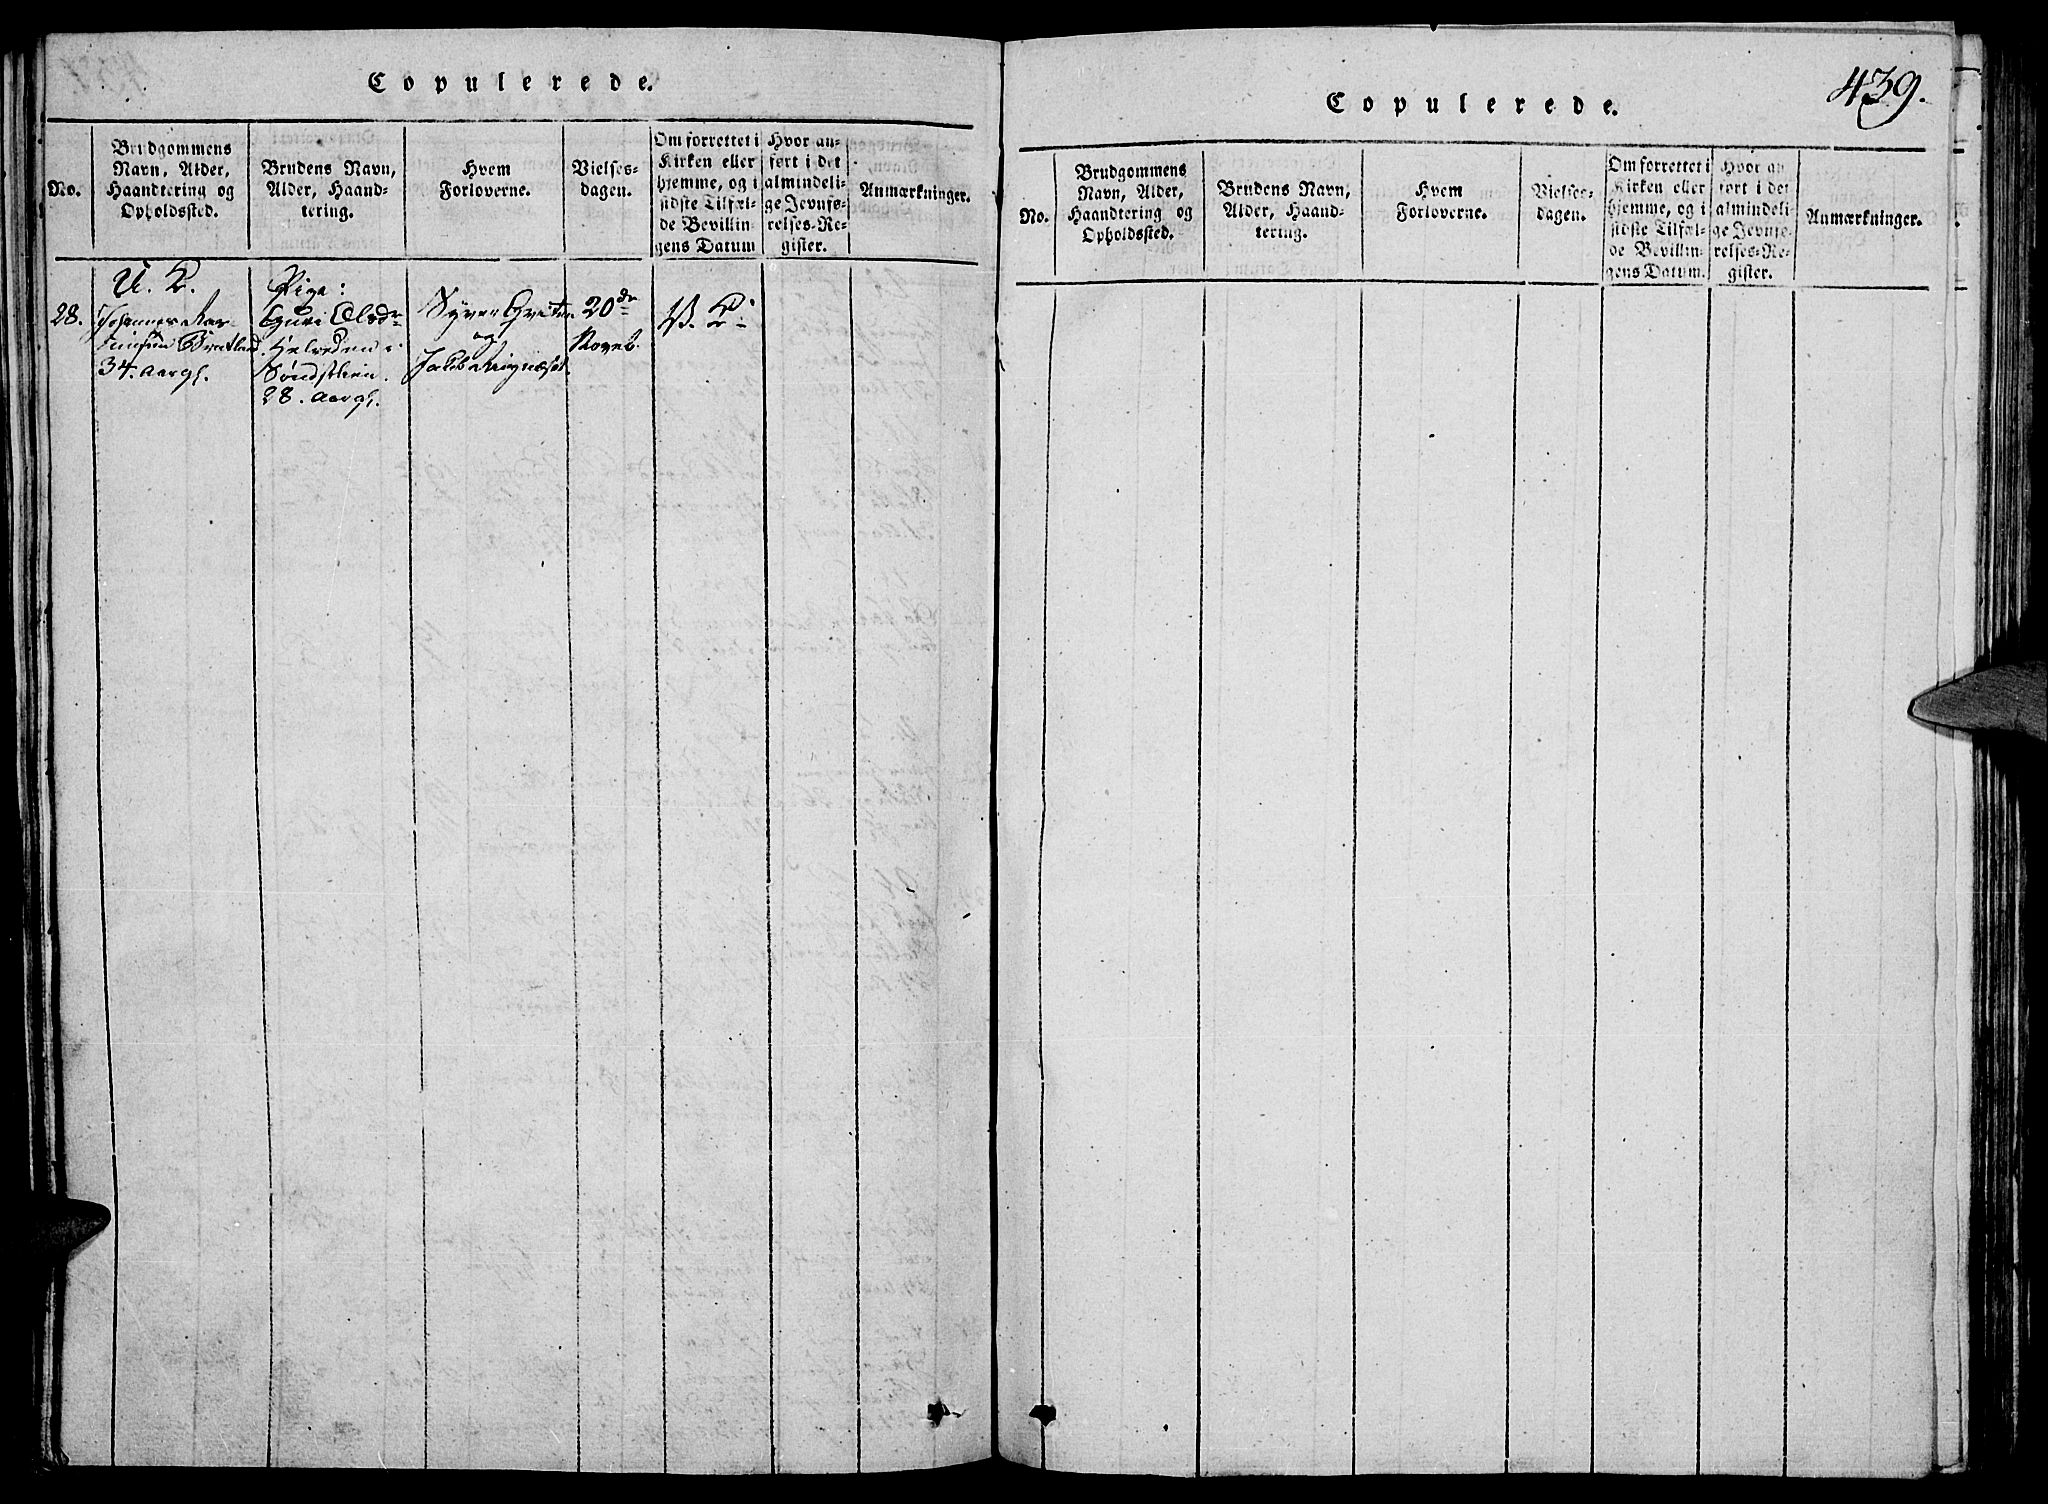 Copulerede.
No.
Brudgommens
Navn, Alder,
Haandtering og
Opholdssted.
Brudens Navn,
Alder, Haand-
tering.
Hvem
Forloverne.
Vielses-
dagen.
Om forrettet i
Kirken eller
hjemme, og i
sidste Tilfæl-
de Bevillin-
gens Datum
Hvor an-
ført i det
almindeli-
ge Jevnfø-
relses-Re-
gister.
Anmærkninger.
28.
U. K.
Johannes
34. Aargl.
Pige:
Guri
i
28. Aargl.
Syver
og
Jakob
20de
Novbr.
Copulerede.
439.
No.
Brudgommens
Navn, Alder,
Haandtering og
Opholdssted.
Brudens Navn,
Alder, Haand-
tering.
Hvem
Forloverne.
Vielses-
dagen.
Om forrettet i
Kirken eller
hjemme, og i
sidste Tilfæl-
de Bevillin-
gens Datum.
Hvor an
ført i det
almindeli-
ge Jevnfø-
relses-Re-
gister.
Anmærkninger.